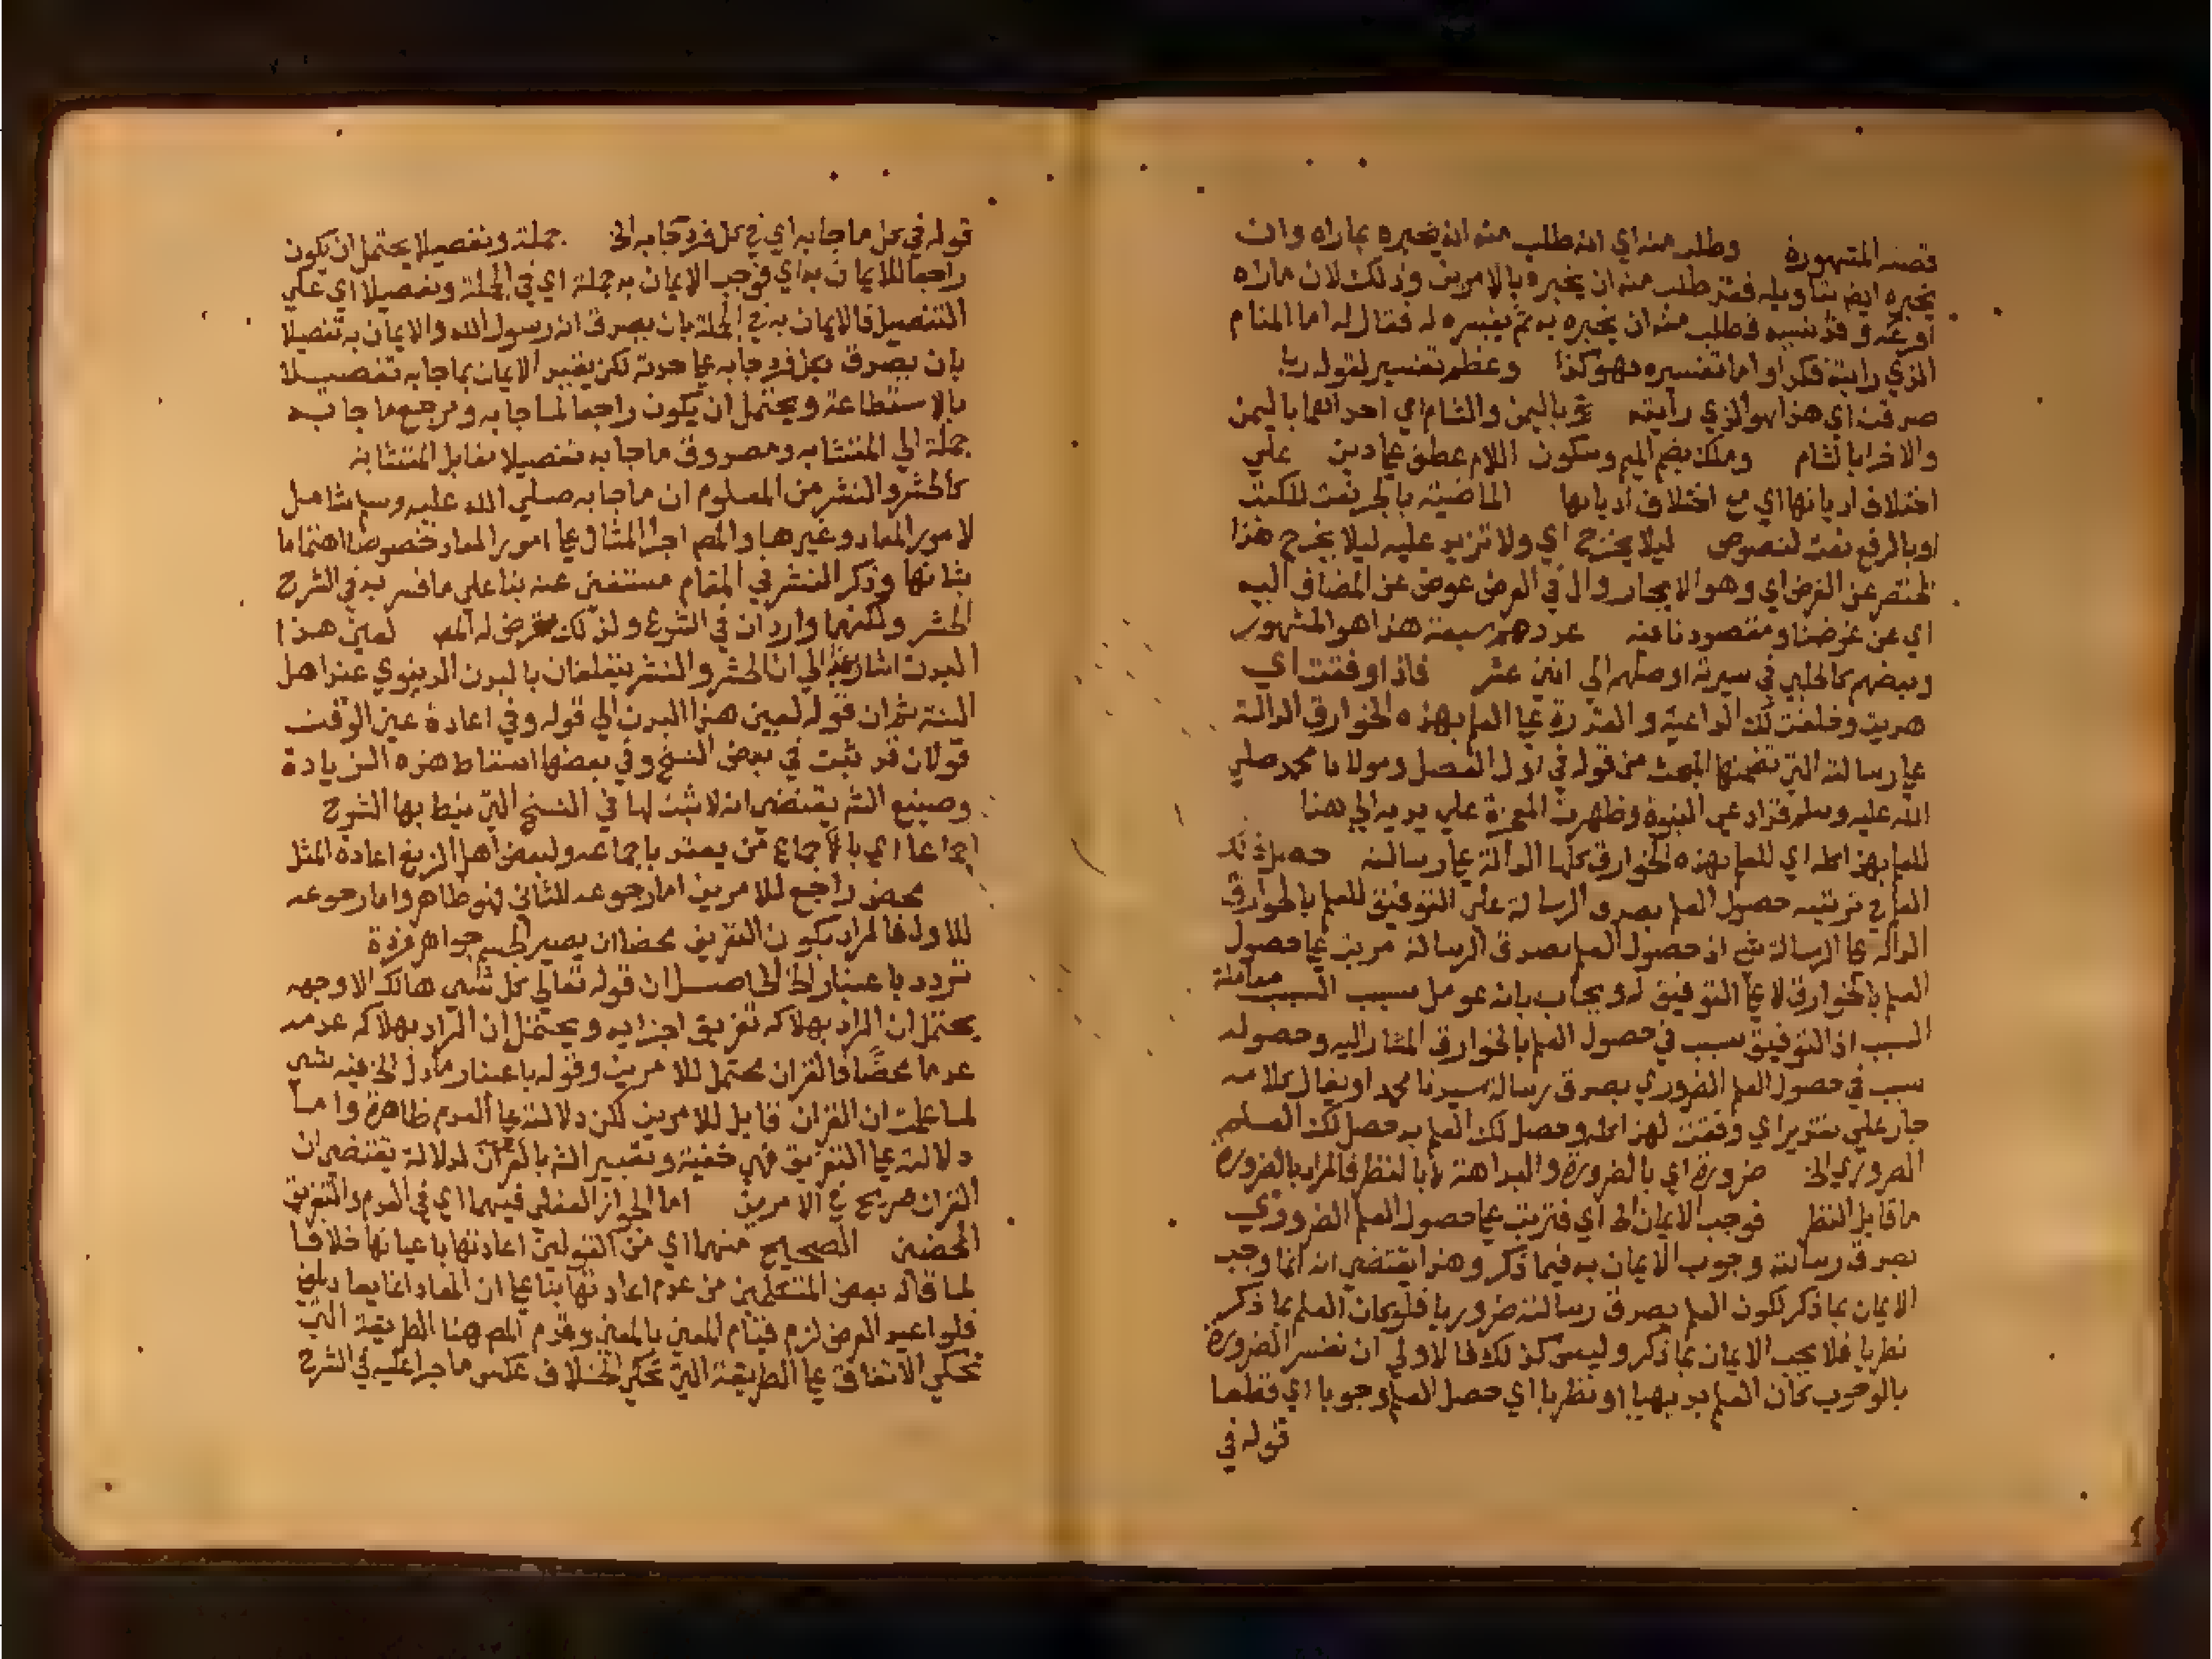 قصته المشهورة وطلب منه اي انه طلب منه ان يخبره بما راه وان
يخبره ايض بتاويله فقد طلب منه ان يخبره بالامرين وذلك لان ماراه
افزعه وقد نسيه فطلب منه ان يخبره به ثم يفسره له فقال له اما المنام
الذي رايته فكذا واما تفسيره فهو كذا وعظم تفسير لقوله
صدقت اي هذا هو الذي رايته باليمن والشام اي احداهما باليمن
والاخرا بالشام وملك بضم الميم وسكون اللام عطف علي دين علي
اختلاف اديانها اي مع اختلاف اديانها الماضية بالجر نعت للكتب
اوبالرفع نعت لنصوص ليلا يخرج اي ولا نزيد عليه ليلا يخرج هذا
المختصر عن الغرض اي وهو الايجاز وال في الغرض عوض عن المضاف اليه
اي عن غرضنا ومقصودنا منه عددهم سبعة هذا هو المشهور
وبعضهم كالحلبي في سيرته اوصلهم الي اثني عشر فاذا وفقت اي
هديت وخلقت لك الداعية والقدرة علي العلم بهذه الخوارق الدالة
علي رسالته التي تضمنها المبحث من قوله في اول الفصل ومولانا محمد صلي
الله عليه وسلم قد ادعي النبوة وظهرت المعجزة علي يديه الي هنا
للعلم بهذا كله اي للعلم بهذه الخوارق كلها الدالة علي رسالته حصل لك
العلم في ترتيبه حصول العلم بصدق الرسالة علي التوفيق للعلم بالخوارق
الدالة علي الرسالة شي اذ حصول العلم بصدق الرسالة مرتب علي حصول
العلم بالخوارق لا علي التوفيق له ويجاب بانه عومل سبب السبب معاملة
السبب اذ التوفيق سبب في حصول العلم بالخوارق المشار اليه وحصوله
سبب في حصول العلم الضروري بصدق رسالة سيدنا محمد او يقال كلامه
جار علي تقدير اي وفقت لهذا كله وحصل لك العلم به حصل لك العلم
الضروري الخ ضرورة اي بالضرورة والبداهة لا بالنظر فالمراد بالضرورة
ماقابل النظر فوجب الايمان الخ اي فترتب علي حصول العلم الضروري
بصدق رسالته وجوب الايمان به فيما ذكر وهذا يقتضي انه انما وجب
الايمان بما ذكر لكون العلم بصدق رسالته ضروريا فلو كان العلم بما ذكر
نظريا فلا يجب الايمان بما ذكر وليس كذلك فالاولي ان تفسر الضرورة
بالوجوب كان العلم بديهيا او نظريا اي حصل العلم وجوبا اي قطعا
قوله في
قوله في كل ما جا به اي في كل فرد جا به الخ جملة وتفصيلا يحتمل ان يكون
راجعا للايمان به اي فوجب الايمان به جملة اي في الجملة وتفصيلا اي علي
التفصيل فالايمان به في الجملة بان يصدق انه رسول الله والايمان به تفصيلا
بان يصدق بكل فرد جا به علي حدته لكن يقيد الايمان بما جا به تفصيلا
بالاستطاعة ويحتمل ان يكون راجعا لما جا به ومرجع ما جا به
جملة الي المتشابه ومصدوق ما جا به تفصيلا مقابل المتشابه
كالحشر والنشر من المعلوم ان ما جا به صلي الله عليه وسلم شامل
لامور المعاد وغيرها والمص اجرا المثال علي امور المعاد خصوصا اهتماما
بشانها وذكر النشر في المقام مستغني عنه بنا علي ما فسر به في الشرح
الحشر ولكنهما واردان في الشرع ولذلك تعرض له المص لعين هذا
البدن اشار به الي ان الحشر والنشر يتعلقان بالبدن الدنيوي عند اهل
السنة ثم ان قوله لعين هذا البدن الي قوله وفي اعادة عين الوقت
قولان قد ثبت في بعض النسخ وفي بعضها اسقاط هذه الزيادة
وصنيع الش يقتضي انه لا ثبت لها في النسخ التي نيط بها الشرح
اجماعا اي بالاجماع من يعتد باجماعه ولبعض اهل الزيغ اعادة المثل
محض راجع للامرين اما رجوعه للثاني فهو ظاهر واما رجوعه
للاول فالمراد بكون التفريق محضا ان يصير الجسم جواهر فردة
تردد باعتبار الخ الحاصل ان قوله تعالي كل شي هالك الا وجهه
يحتمل ان المراد بهلاكه تفريق اجزايه ويحتمل ان المراد بهلاكه عدمه
عدما محضا فالقران محتمل للامرين وقوله باعتبار مادل الخ فيه شي
لما علمت ان القران قابل للامرين لكن دلالته علي العدم ظاهرة واما
دلالته علي التفريق فهي خفية وتعبير الش بالقران لدلالة يقتضي ان
القران صريح في الامرين اما الجواز العقلي فيهما اي في العدم والتفريق
المحضين الصحيح منهما اي من القولين اعادتها باعيانها خلافا
لما قاله بعض المتكلمين من عدم اعادتها بنا علي ان المعاد انما يعاد بمعني
فلو اعيد العرض لزم قيام المعني بالمعني وقدم المص هنا الطريقة التي
تحكي الاتفاق علي الطريقة التي تحكي الخلاف عكس ما جرا عليه في الشرح